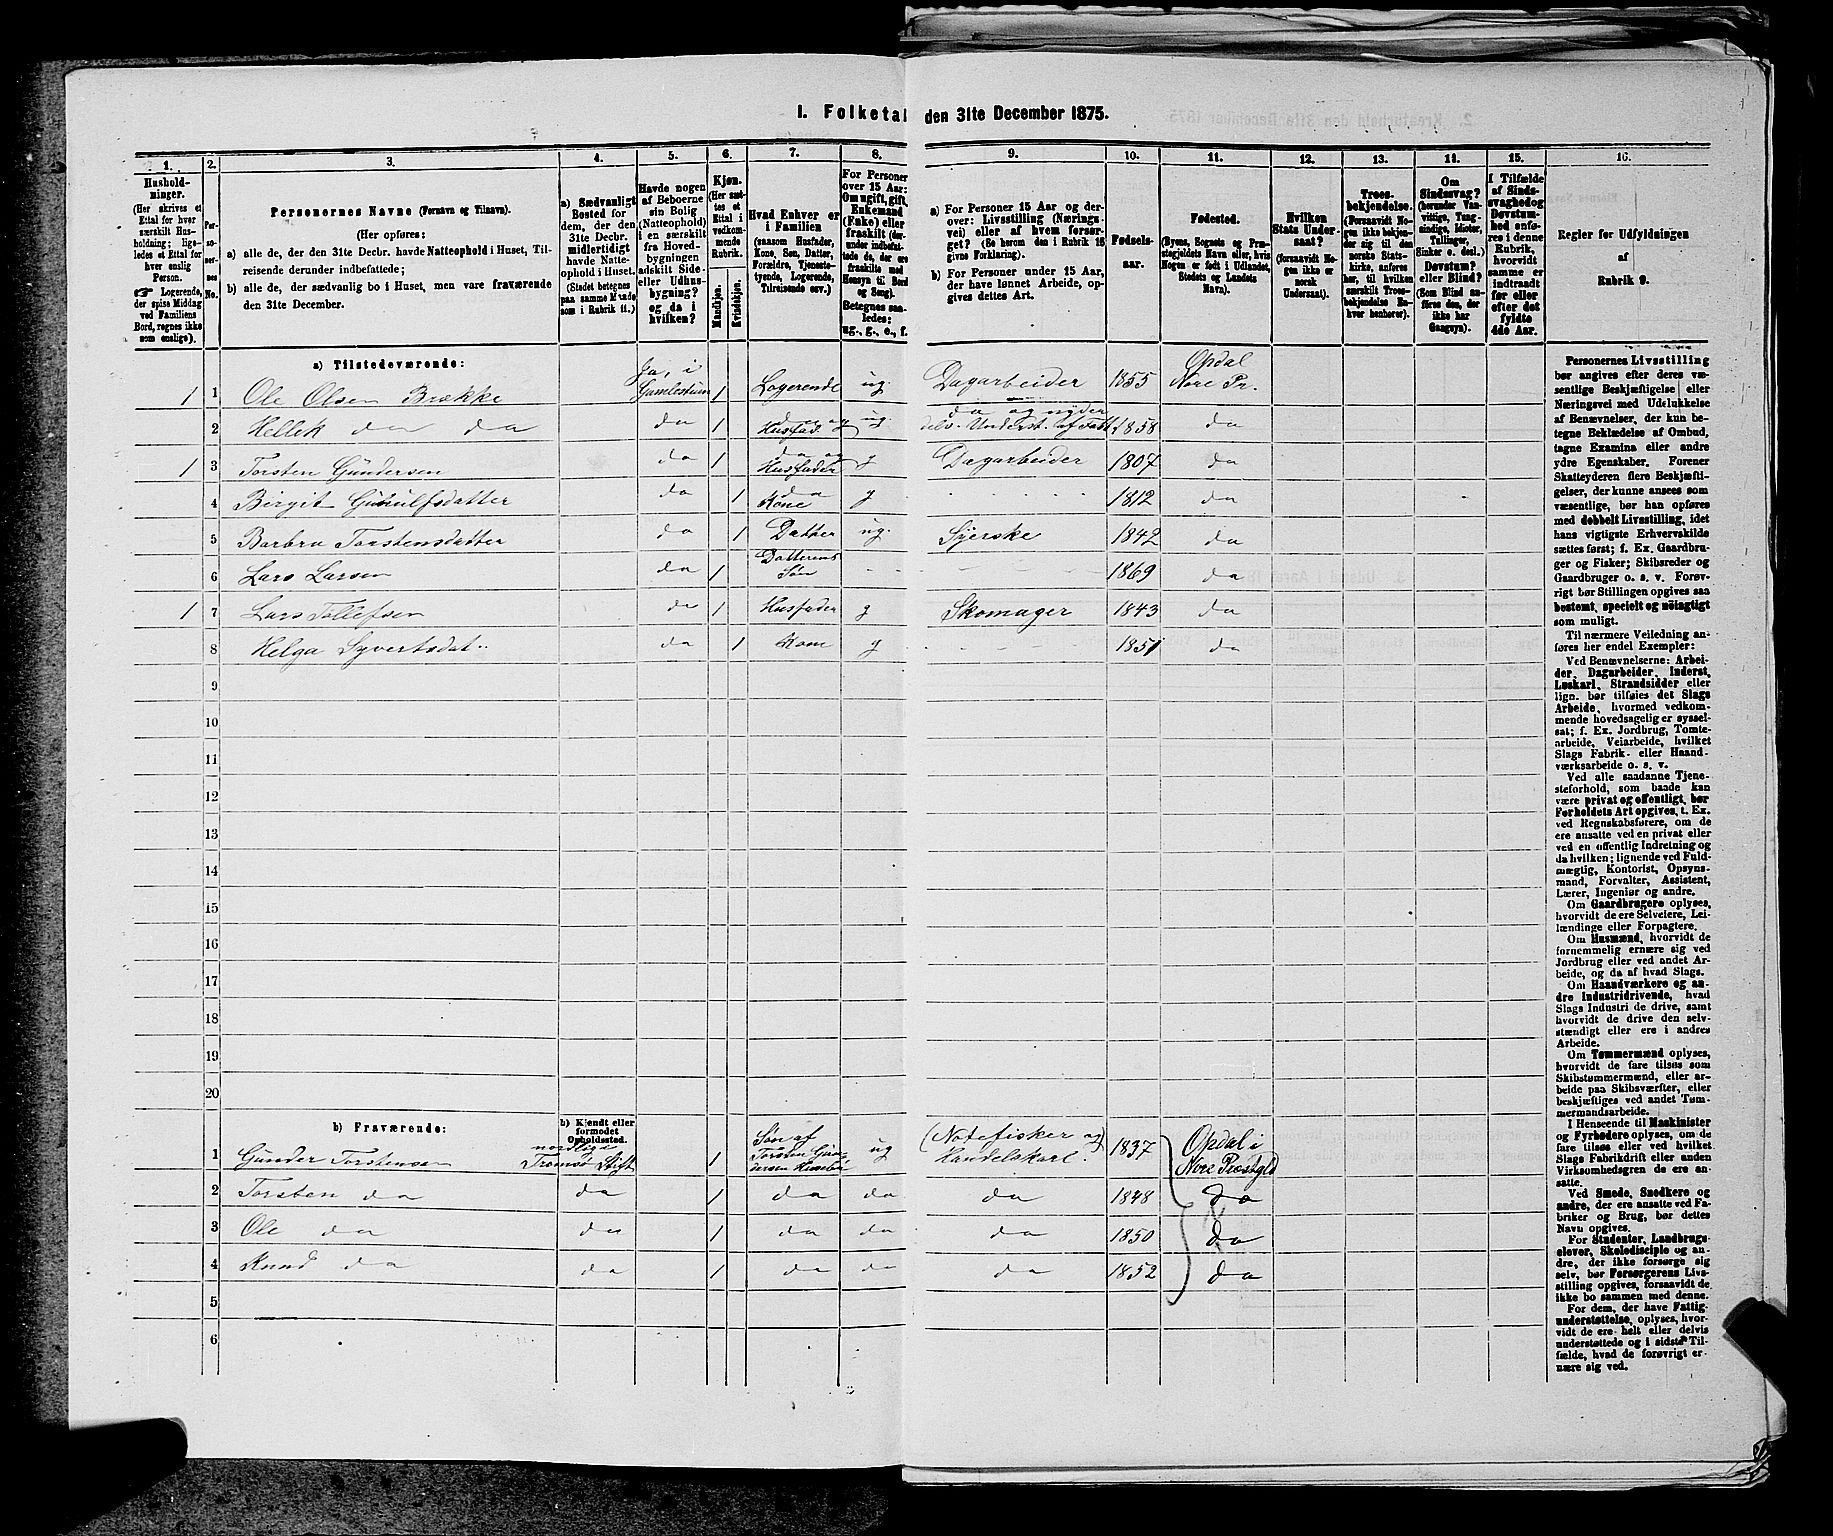 I. Folketal den 31te December 1875.
1. 2. 3. 4. 5. 6. 7. 8. 9. 10. 11. 12. 13. 14. 15. 16.
Husholdninger.
(Her skrives et
Ettal for hver
særskilt Husholdning;
ligeledes et Ettal for
hver enslig
Person.
☞ Logerende,
der spise Middag
ved Familiens
Bord, regnes ikke
som enslige).
Personernes No.
Personernes Navne (Fornavn og Tilnavn).
(Her opføres:
a) alle de, der den 31te Decbr. havde Natteophold i Huset, Tilreisende derunder indbefattede;
b) alle de, der sædvanlig bo i Huset, men vare fraværende
den 31te December.
a) Sædvanligt
Bosted for
dem, der den
31te Decbr.
midlertidigt
havde Natteophold i Huset.
(Stedet betegnes
paa samme Maade
som i Rubrik 11.)
Havde nogen
af Beboerne
sin Bolig
(Natteophold)
i en særskilt
fra Hovedbygningen
adskilt Side-
eller Udhusbygning?
og da i
hvilken?
Kjøn.
(Her sættes et
Ettal i
vedkommende
Rubrik.
Mandkjøn.
Kvindekjøn.
Hvad Enhver er
i Familien
(saasom Husfader,
Kone, Søn, Datter,
Forældre, Tjenestetyende, Logerende,
Tilreisende osv.)
For Personer
over 15 Aar:
Om ugift, gift,
Enkemand
(Enke) eller
fraskilt (derunder indbefattede de, der ere
fraskilte med
Hensyn til Bord
og Seng).
Betegnes saaledes:
ug., g., e., f.
a) For Personer 15 Aar og derover: Livsstilling (Næringsvei) eller af hvem forsørget? (Se herom den i Rubrik 16
givne Forklaring).
b) For Personer under 15 Aar,
der have lønnet Arbeide, opgives dettes Art.
Fødselsaar.
Fødested.
(Byens, Sognets og Præstegjeldets Navn eller, hvis
Nogen er født i Udlandet,
Stedets og Landets
Navn).
Hvilken
Stats Undersaat?
(forsaavidt Nogen ikke er
norsk
Undersaat).
Troesbekjendelse.
(Forsaavidt Nogen ikke bekjender sig til den
norske Statskirke, anføres
her, til hvilken
særskilt Troesbekjendelse Enhver henhører).
Om
Sindssvag?
(herunder Vanvittige, Tungsindige, Idioter,
Tullinger,
Sinker o. desl.)
Døvstum?
eller Blind?
(Som Blind anføres den, der
ikke har
Gangsyn).
I Tilfælde
af Sindssvaghed og
Døvstumhed anføres i denne
Rubrik,
hvorvidt
samme er
indtraadt
før eller
efter det
fyldte
4de Aar.
Regler for Udfyldningen
af
Rubrik 9.
a) Tilstedeværende:
1 1 Ole Olsen Brække Ja, i Gamlestuen 1 Logerende ug. Dagarbeider 1855 Opdal Nore Pr.
2 Hellik da da da 1 ug. da og nyder delv. Underst. af Fattv. 1858 da
1 3 Torsten Gundersen da 1 da og Husfader g Dagarbeider 1807 da
4 Birgit Gunulfsdatter da 1 da Kone g 1812 da
5 Barbra Torstensdatter da 1 Datter ug. Syerske 1842 da
6 Lars Larsen da 1 Datterens Søn 1869 da
1 7 Lars Tollefsen da 1 Husfader g Skomager 1843 da
8 Helga Syvertsdat.. da 1 Kone g 1851 da
9
10
11
12
13
14
15
16
17
18
19
20
b) Fraværende: b) Kjendt eller
formodet
Opholdssted.
1 Gunder Torstensen nordlige Tromsø Stift 1 Søn af Torsten Gundersen ug (Notefisker og Handelskarl.) 1837 Opdal i Nore Præstgld
2 Torsten da da 1 da da da 1848 da
3 Ole da da 1 da da da 1850 da
4 Knud da da 1 da da da 1852 da
5
6
Personernes Livsstilling
bør angives efter deres væsentlige Beskjæftigelse eller
Næringsvei med Udelukkelse
af Benævnelser, der kun betegne Beklædelse af Ombud,
tagne Examina eller andre
ydre Egenskaber. Forener
Skatteyderen flere Beskjæftigelser, der kunne ansees som
væsentlige, bør han opføres
med dobbelt Livsstilling, idet
hans vigtigste Erhvervskilde
sættes først; f. Ex. Gaardbruger og Fisker; Skibsreder og
Gaardbruger o. s. v. Forøvrigt bør Stillingen opgives saa
bestemt, specielt og nøiagtigt
som muligt.
Til nærmere Veiledning anføres her endel Exempler:
Ved Benævnelserne: Arbeider, Dagarbeider, Inderst,
Løskarl, Strandsidder eller
lign. bør tilføies det Slags
Arbeide, hvormed vedkommende hovedsagelig er sysselsat; f. Ex. Jordbrug, Tomtearbeide, Veiarbeide, hvilket
Slags Fabrik- eller Haandværksarbeide o. s. v.
Ved alle saadanne Tjenesteforhold, som baade kan
være privat og offentligt, bør
Forholdets Art opgives, t. Ex.
ved Regnskabsførere, om de
ere ansatte ved en privat eller
ved en offentlig Indretning og
da hvilken; lignende ved Fuldmægtig, Kontorist, Opsynsmand, Forvalter, Assistent,
Lærer, Ingeniør og andre.
Om Gaardbrugere oplyses,
hvorvidt de ere Selveiere, Leilændinge eller Forpagtere.
Om Husmænd, hvorvidt de
fornemmelig ernære sig ved
Jordbrug eller ved andet Arbeide, og da af hvad Slags.
Om Haandværkere og andre Industridrivende, hvad
Slags Industri de drive, samt
hvorvidt de drive den selvstændigt eller ere i andres
Arbeide.
Om Tømmermænd oplyses,
hvorvidt de fare tilsøs som
Skibstømmermænd, eller arbeide paa Skibsværfter, eller
beskjæftiges ved andet Tømmermandsarbeide.
I Henseende til Maskinister
og Fyrbødere oplyses, om de
fare tilsøs eller ved hvilket
Slags Fabrikdrift eller anden
Virksomhed de ere ansatte.
Ved Smede, Snedkere og
andre, der ere ansatte ved Fabriker og Brug, bør dettes
Navn opgives.
For Studenter, Landbrugselever, Skoledisciple og andre, der ikke forsørge sig
selv, bør Forsørgerens Livsstilling opgives, forsaavidt de
ikke bo sammen med denne.
For dem, der have Fattigunderstøttelse, oplyses, hvorvidt de ere helt eller delvis
understøttede og i sidste Tilfælde, hvad de forøvrigt ernære sig ved.